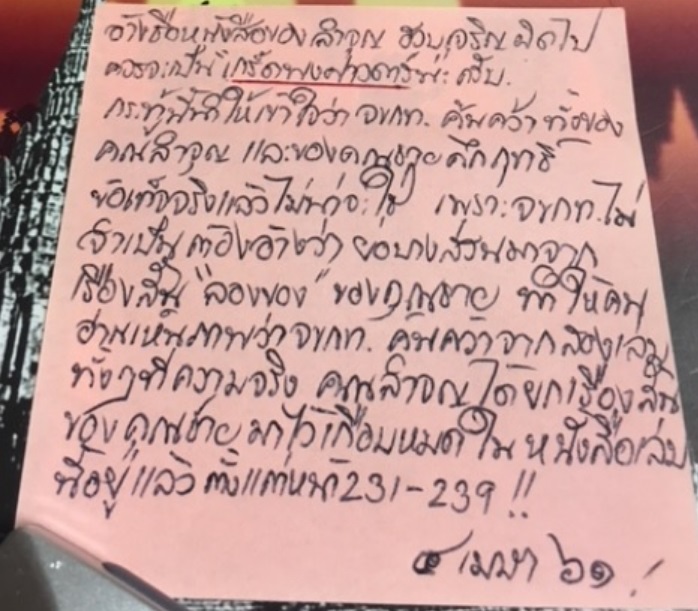 อ้างชื่อหนังสือของ ลำจุณ ฮวบเจริญ ผิดไป
ควรจะเป็น "เกร็ดพงศาวดารฯ" ครับ.
กระทู้นี้ทำให้เข้าใจว่า จขกท. ค้นคว้า ทั้งของ
คุณลำจุณ และของคุณชาย คึกฤทธิ์
ข้อเท็จจริงแล้วไม่น่าจะใช่ เพราะ จขกท. ไม่
จำเป็นต้องอ้างว่า ยอบางส่วนมาจาก
เรื่องสั้น "ลองของ" ของคุณชาย ทำให้คน
อ่านเห็นภาพว่า จขกท. ค้นคว้าจากสองเล่ม
ทั้งๆที่ความจริง คุณลำจุณ ได้ยกเรื่องสั้น
ของคุณชาย มาไว้เกือบหมดใน หนังสือเล่ม
นี้อยู่แล้ว ตั้งแต่หน้า 231-239 !!
๕ เมษา ๖๑ !